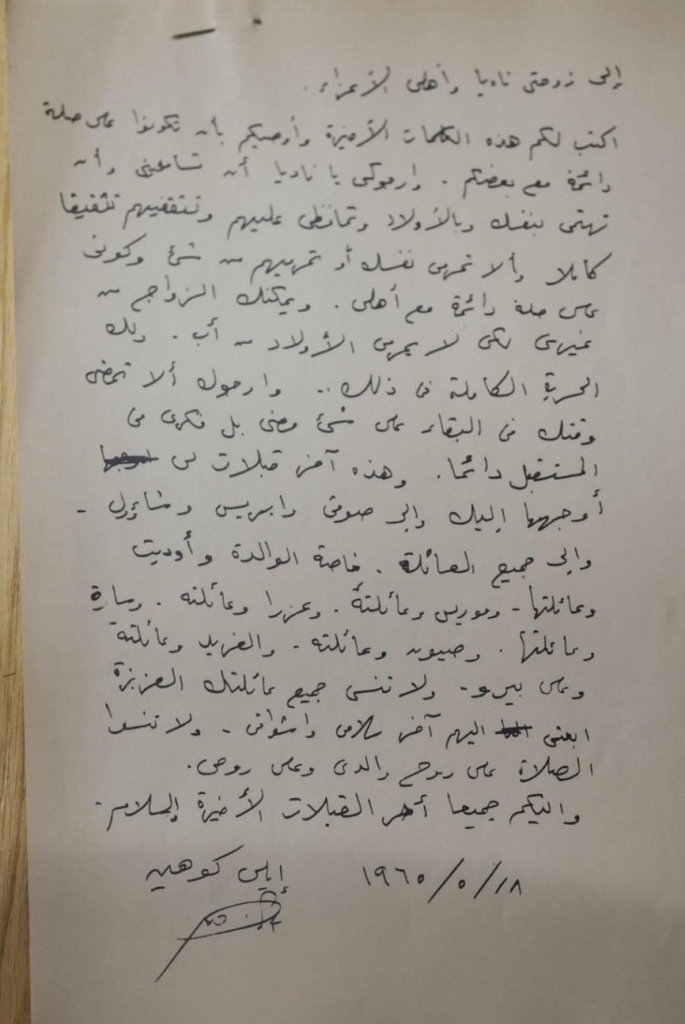 إلى زوجتي ناديا وأهلي الأعزاء.
اكتب لكم هذه الكلمات الأخيرة وأوصيكم بأن تكونوا على صلة
دائمة مع بعضكم. وارجوكي يا ناديا أن تسامحيني وأن
تهتمي بنفسك وبالأولاد وتحافظي عليهم وتثقفيهم تثقيفا
كاملا وألا تحرمي نفسك أو تحرميهم من شئ وكوني
على صلة دائمة مع أهلي. ويمكنك الزواج من
غيري لكي لا يحرمي الأولاد من أب. ولك
الحرية الكاملة في ذلك.. وارجوك ألا تمضي
وقتك في البكاء على شئ مضى بل فكري في
المستقبل دائما. وهذه آخر قبلات لي
أوجهها إليك وإلى صوفي وايريس وشاؤول -
وإلى جميع العائلة. خاصة الوالدة وأوديت
وعائلتها - وموريس وعائلتة. وعزرا وعائلته. وسارة
وعائلتها. وصيون وعائلته - والفريد وعائلتة
وعلى بيرو - ولا تنسي جميع عائلتك العزيزة
ابعثي اليهم آخر سلامي واشواقي - ولا تنسوا
الصلاة على روح والدي وعلى روحي.
واليكم جميعا أحر القبلات الأخيرة والسلام.
١٩٦٥/٥/١٨ إيلي كوهين